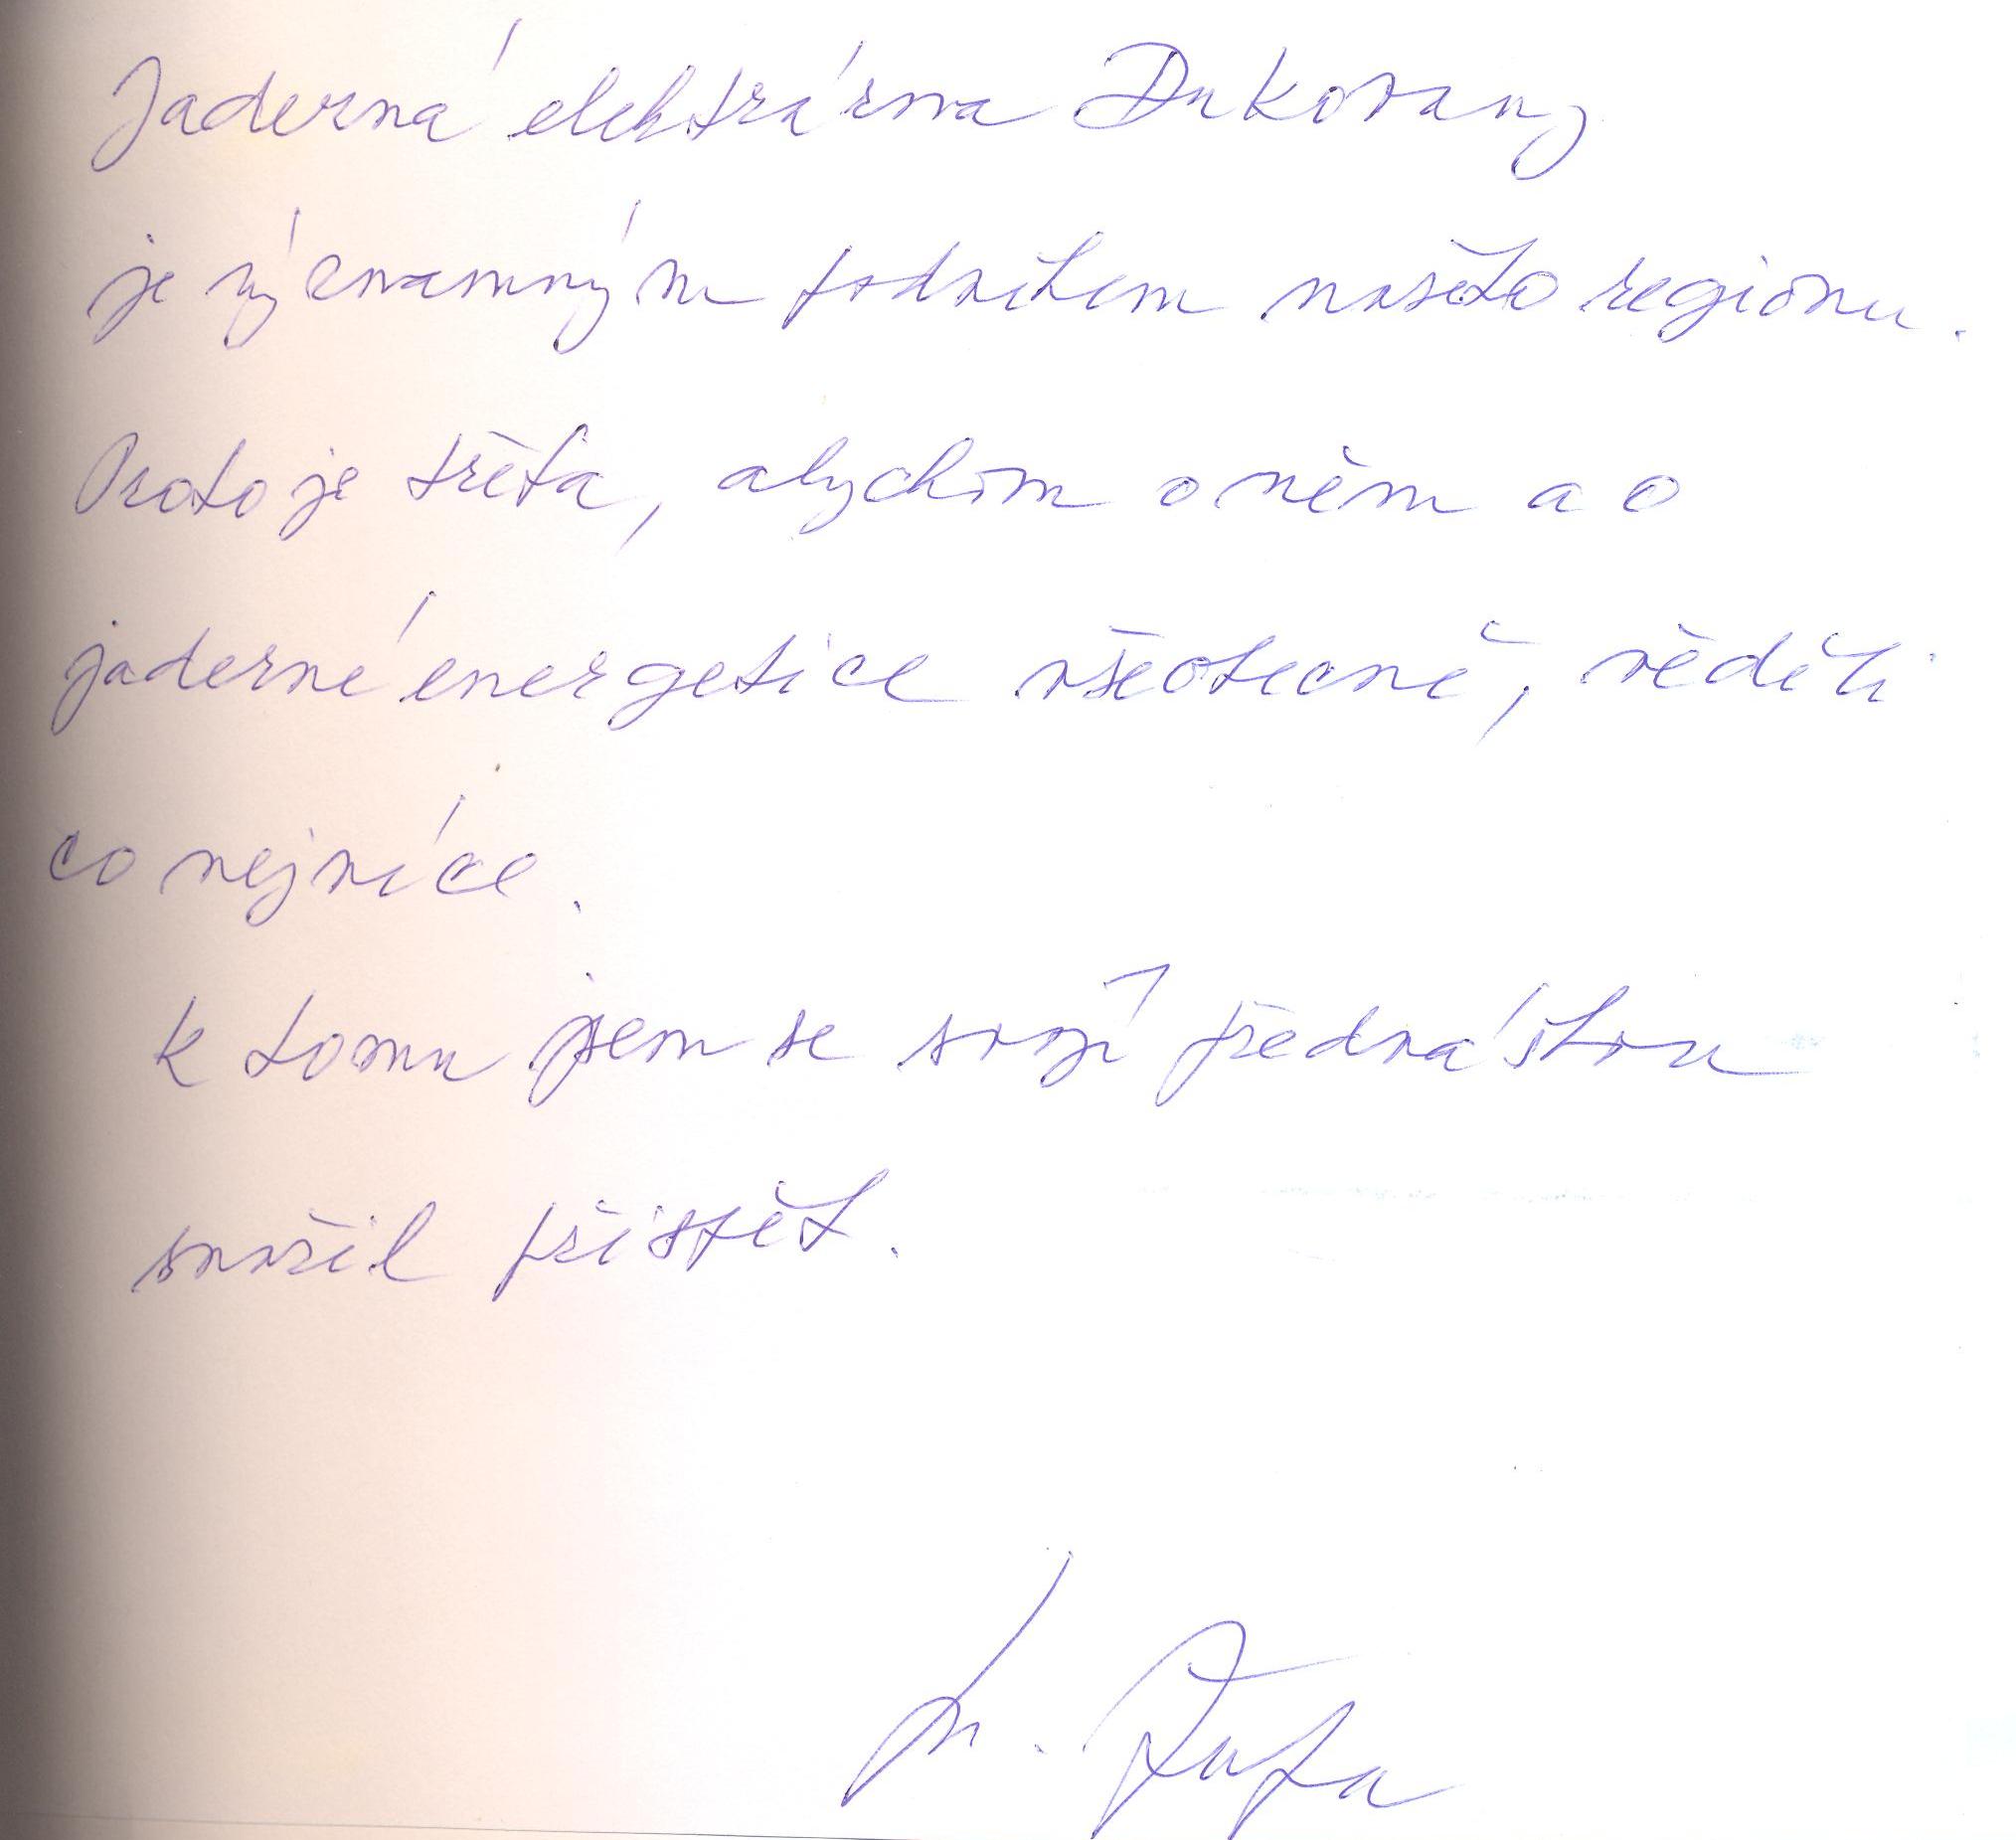 Jaderná elektrárna Dukovany
je významným podnikem našeho regionu.
Proto je třeba, abychom o něm a o
jaderné energetice všeobecně, věděli
co nejvíce.
K tomu jsem se svojí přednáškou
snažil přispět.